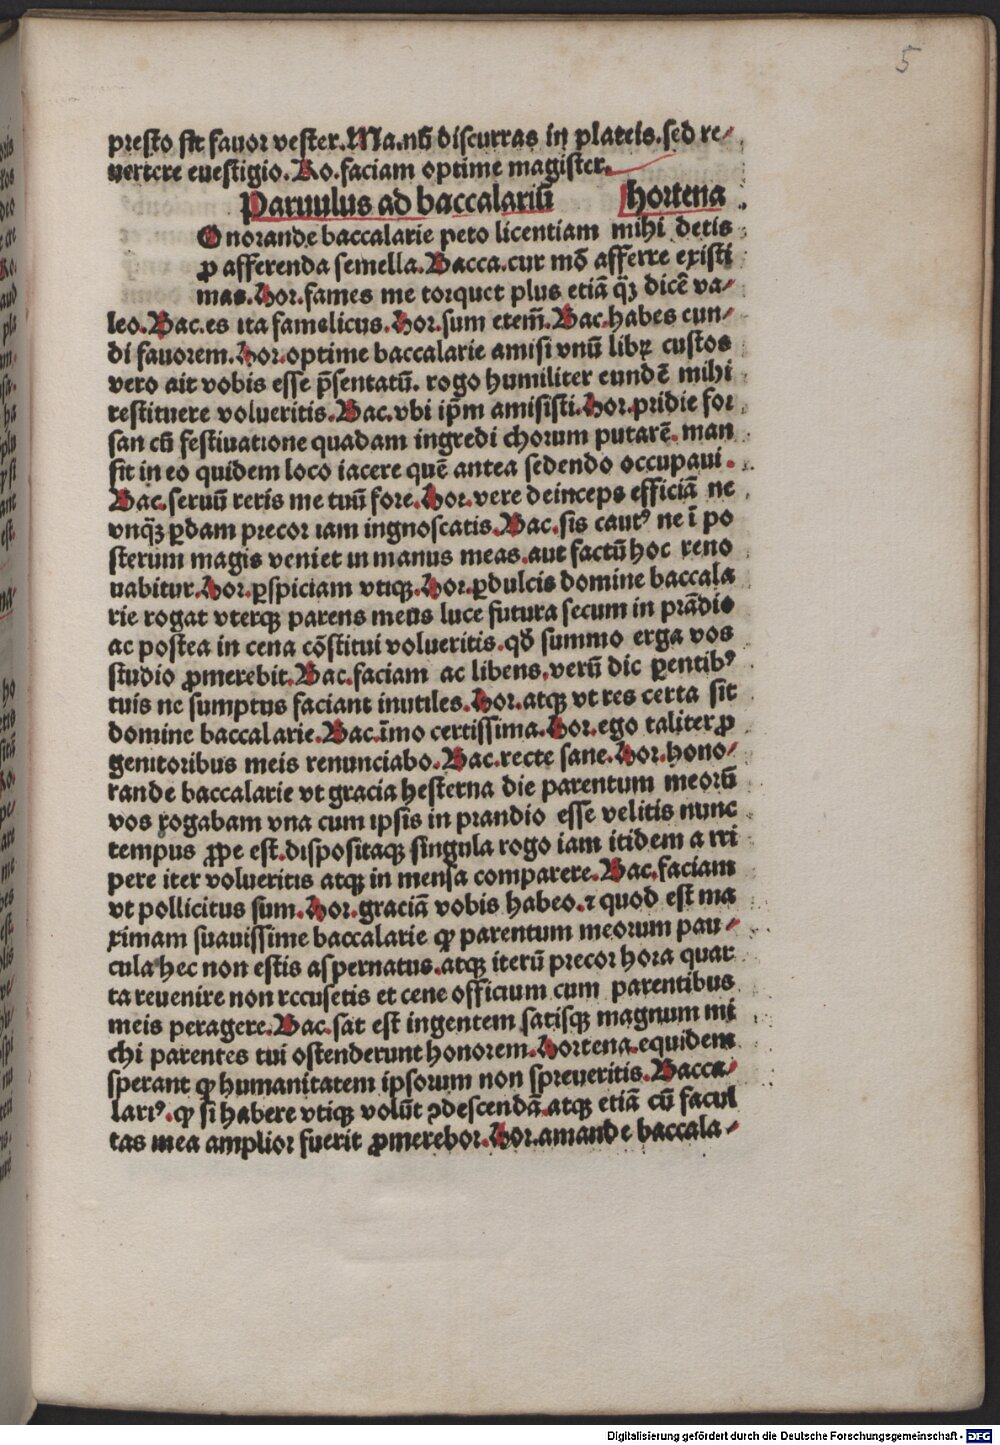 5
presto sit fauor vester.Ma.nō discurras in plateis.sed re⸗
vertere euestigio.Ro.faciam optime magister.
Paruulus ad baccalariū hortena
Onorande baccalarie peto licentiam mihi detis
ꝓ afferenda semella.Bacca.cur mō afferre existi
mas.Hor.fames me torquet plus etiā qȝ̄ dicē va⸗
leo.Bac.es ita famelicus.Hor.sum etem̄.Bac.habes eun⸗
di fauorem.Hor.optime baccalarie amisi vnū libꝝ custos
vero ait vobis esse p̄sentatū. rogo humiliter eundē mihi
restituere volueritis.Bac.vbi ip̄m amisisti.Hor.pridie for
san cū festiuatione quadam ingredi chorum putarē.man
sit in eo quidem loco iacere quē antea sedendo occupaui.
Bac.seruū reris me tuū fore.Hor.vere deinceps efficiā ne
vnqȝ̄ ꝑdam precor iam ingnoscatis.Bac.sis cautꝰ ne ī po
sterum magis veniet in manus meas.aut factū hoc reno
uabitur.Hor.ꝑspiciam vtiqꝫ.Hor.ꝑdulcis domine baccala
rie rogat vterqꝫ parens meus luce futura secum in prādio
ac postea in cena cōstitui volueritis.qđ summo erga vos
studio ꝓmerebit.Bac.faciam ac libens.verū dic ꝑentibꝰ
tuis ne sumptus faciant inutiles.Hor.atqꝫ vt res certa sit
domine baccalarie.Bac.īmo certissima.Hor.ego taliter ꝓ
genitoribus meis renunciabo.Bac.recte sane.Hor.hono⸗
rande baccalarie vt gracia hesterna die parentum meorū
vos rogabam vna cum ipsis in prandio esse velitis nunc
tempus ꝓpe est.dispositaqꝫ singula rogo iam itidem arri
pere iter volueritis atqꝫ in mensa comparere.Bac.faciam
vt pollicitus sum.Hor.graciā vobis habeo.⁊ quod est ma
ximam suauissime baccalarie ꝙ parentum meorum pau⸗
cula hec non estis aspernatus.atqꝫ iterū precor hora quar
ta reuenire non recusetis et cene officium cum parentibus
meis peragere.Bac.sat est ingentem satisqꝫ magnum mi
chi parentes tui ostenderunt honorem.Hortena.equidem
sperant ꝙ humanitatem ipsorum non spreueritis.Bacca⸗
lariꝰ.ꝙ si habere vtiqꝫ volūt ꝯdescendā.atqꝫ etiā cū facul
tas mea amplior fuerit ꝓmerebor.Hor.amande baccala⸗
Digitalisierung gefördert durch die Deutsche Forschungsgemeinschaft - DFG